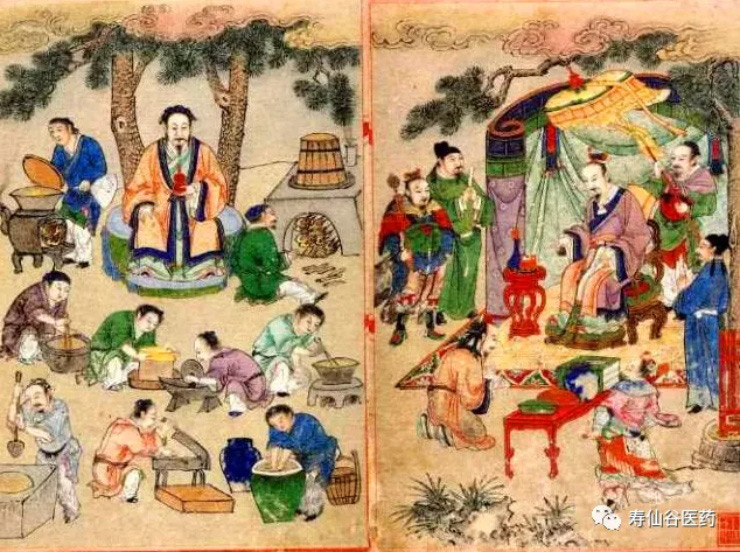 寿仙谷医药